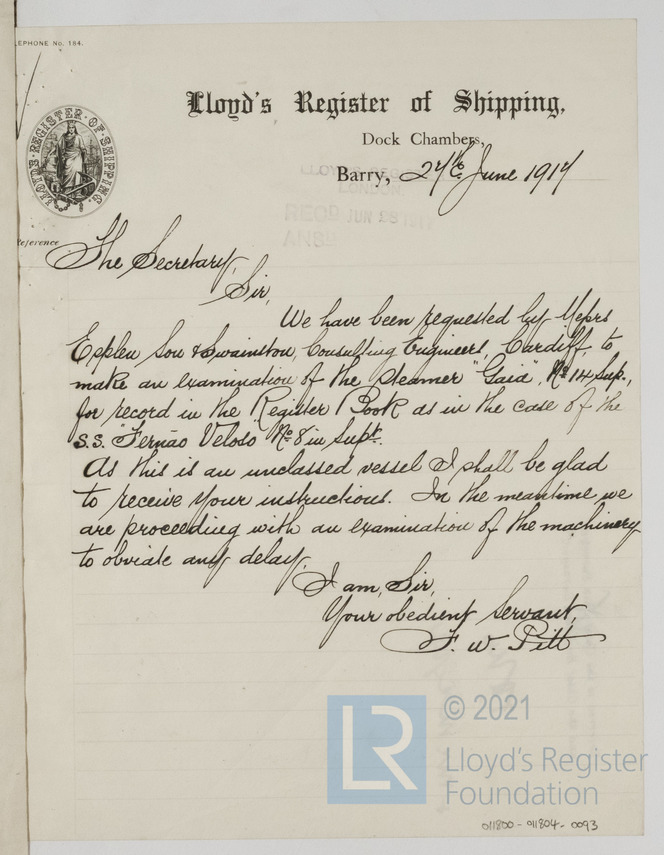 TELEPHONE No. 184.
Lloyd's Register of Shipping,
Dock Chambers,
Barry, 24th June 1914
LLOYD'S REGISTER OF SHIPPING
LLOYD'S REGISTER
LONDON
RECD JUN
ANSD
Reference
The Secretary,
Sir,
We have been requested by Messrs
Epplen Son & Swainston, Consulting Engineers, Cardiff, to
make an examination of the Steamer "Gaid", No 14 Sup.,
for record in the Register Book as in the case of the
S.S. "Fernão Veloso" No 8 in Supt.
As this is an unclassed vessel I shall be glad
to receive your instructions. In the meantime we
are proceeding with an examination of the machinery
to obviate any delay.
I am, Sir,
Your obedient Servant,
F. W. Pitt
LR
© 2021
Lloyd's Register
Foundation
011800 - 011804 - 0093